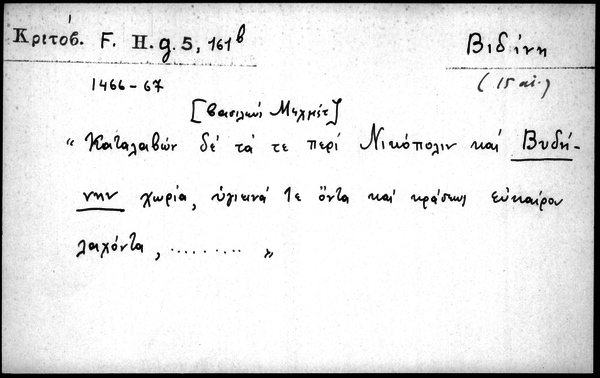 Κριτόβ. F. H. g. 5, 161b
Βιδίνη
1466-67
(15 αἰ.)
[βασιλεύς Μεχμέτ]
“Καταλαβών δέ τά τε περί Νικόπολιν καί Βυδή-
νην χωρία, ὑγιεινά τε ὄντα καί κράσεως εὐκαίρου
λαχόντα, ......... ”